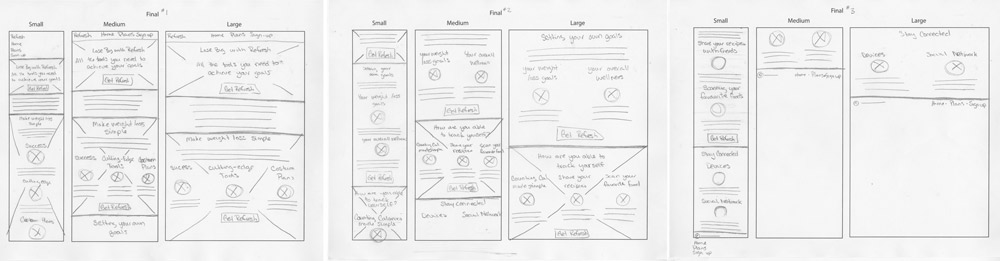 Final #1
Small
Medium
Large
Refresh
Home
Plans
Sign-up
Lose Big with Refresh
All the tools you need
to achieve your goals
Get Refresh
Make weight loss
Simple
Success
Custom Plans
Refresh Home Plans Sign-up
Lose Big with Refresh
All the tools you need to
achieve your goals
Get Refresh
Make weight loss
simple
success
Cutting-Edge
Tools
Custom
Plans
Get Refresh
Setting your own
goals
Refresh Home Plans Sign-up
Lose Big with Refresh
All the tools you need to
achieve your goals
Get Refresh
Make weight loss simple
success
Cutting-edge
Tools
Custom
Plans
Get Refresh
Final #2
Small
Medium
Large
Get Refresh
Setting your
own goals
Your weight loss
goals
Your overall wellness
Get Refresh
How are you able
to track
yourself?
Counting Calories
made Simple
your weight
loss goals
Your overall
wellness
Get Refresh
How are you able
to track yourself
Counting Cal
made simple
Share your
recipes
Scan your
favourite food
Get Refresh
Stay Connected
Devices
Social Network
Setting your own goals
your weight
loss goals
your overall
wellness
Get Refresh
How are you able to
track yourself
Counting Cal
made simple
Share your
recipes
Scan your
favourite food
Get Refresh
Final #3
Small
Medium
Large
Share your recipes
with friends
Scanning your
favourite foods
Get Refresh
Stay Connected
Devices
Social Network
Home
Plans
Sign up
Home - Plans - Sign up
Stay Connected
Devices
Social Network
Home - Plans - Sign up